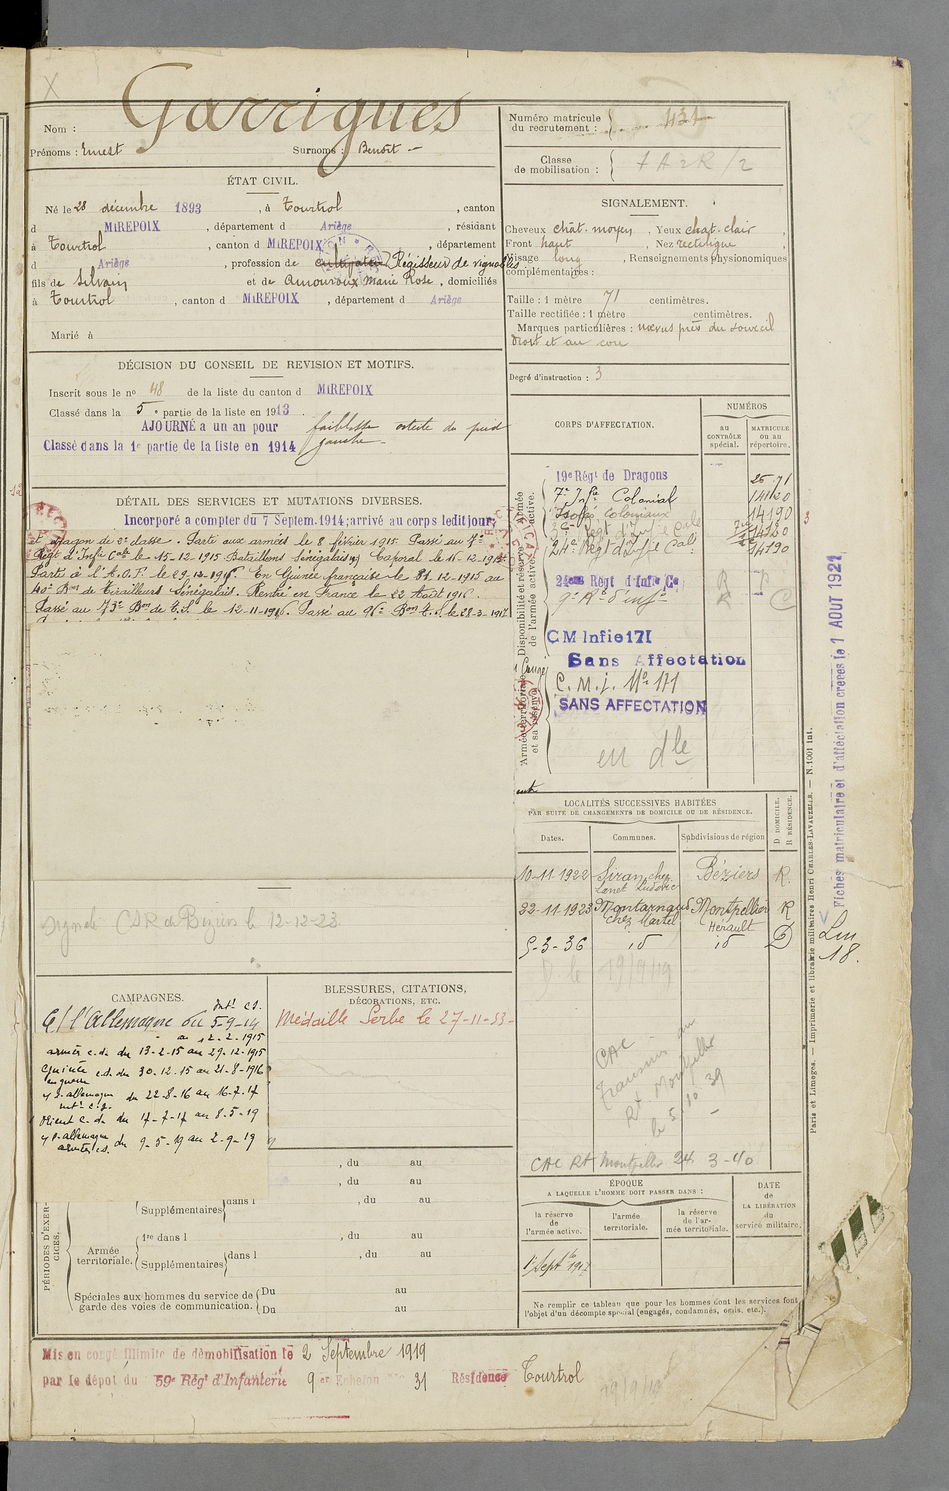 Garrigues
Nom :
Prénoms : Ernest Surnoms : Benoît
ÉTAT CIVIL.
Né le 28 décembre 1893, à Tourtrol, canton
d MIREPOIX, département d Ariège, résidant
à Tourtrol, canton d MIREPOIX, département
d Ariège, profession de cultivateur Régisseur de vignobles
fils de Silvain et de Amouroux Marie Rose, domiciliés
à Tourtrol, canton d MIREPOIX, département d Ariège
Marié à
DÉCISION DU CONSEIL DE REVISION ET MOTIFS.
Inscrit sous le no 48 de la liste du canton d MIREPOIX
Classé dans la 5e partie de la liste en 1913.
AJOURNÉ a un an pour faiblesse du pied
Classé dans la 1e partie de la liste en 1914 gauche
DÉTAIL DES SERVICES ET MUTATIONS DIVERSES.
Incorporé a compter du 7 Septem. 1914; arrivé au corps ledit jour,
et dragon de 2e classe. Parti aux armées le 8 février 1915. Passé au 7e
Régt d'Infie Cale le 15-12-1915 Bataillons Sénégalais) Caporal le 15-12-1915
Parti à l'A.O.F. le 29-12-1915. En Guinée française le 31.12.1915 au
40e Bon de Tirailleurs Sénégalais. Rentré en France le 22 Août 1916.
Passé au 73e Bon de T.S. le 12-11-1916. Passé au 96e Bon T.S. le 28-3-1917
CSR de Béziers le 12-12-23
CAMPAGNES.
C/ l'Allemagne du 5-9-14
au 12-2-1915
armées c.d. du 13-2-15 au 29-12-1915
Guinée c.d. du 30-12-15 au 21-8-1916
en guerre
c/ l'allemagne du 22-8-16 au 16-7-17
Orient c.d. du 17-7-17 au 8-5-19
c/ l'allemagne du 9-5-19 au 2-9-19
BLESSURES, CITATIONS,
DÉCORATIONS, ETC.
Médaille Serbe le 27-11-33
, du au
, du au
PÉRIODES D'EXERCICES.
Supplémentaires dans l , du au
Armée territoriale.
1re dans l , du au
Supplémentaires dans l , du au
Spéciales aux hommes du service de
garde des voies de communication.
Du au
Du au
Mis en congé illimité de démobilisation le 2 Septembre 1919
par le dépot du 59e Régt d'Infanterie 9e Echelon No 31 Résidence Tourtrol
Numéro matricule
du recrutement : 431
Classe
de mobilisation :
SIGNALEMENT.
Cheveux chât. moyen, Yeux chat. clair
Front haut, Nez rectiligne
Visage long, Renseignements physionomiques
complémentaires :
Taille : 1 mètre 71 centimètres.
Taille rectifiée : 1 mètre centimètres.
Marques particulières : nœvus près du sourcil
droit et au cou
Degré d'instruction : 3
CORPS D'AFFECTATION.
NUMÉROS
AU CONTRÔLE spécial.
MATRICULE ou au répertoire.
Armée active.
Disponibilité et réserve de l'armée active.
Armée territoriale et sa réserve
19e Régt de Dragons
7e Infie Colonial 14120
Colonial 14190
24e Régt d'Infie Cale 14190
24ème Régt d'Infie Cale
CM Infie 171
Sans Affectation
C.M.I. No 171
SANS AFFECTATION
en dle
LOCALITÉS SUCCESSIVES HABITÉES
PAR SUITE DE CHANGEMENTS DE DOMICILE OU DE RÉSIDENCE.
Dates. Communes. Subdivisions de région D DOMICILE. R RÉSIDENCE.
10-11-1922 Siran chez Béziers R
22-11-1923 Montarnaud Montpellier R
chez Martel Hérault
5-3-36 id id D
CAC
transmis au
Rt Montpellier
le 5/10/39
CAC Rt Montpellier 24 3-40
ÉPOQUE
A LAQUELLE L'HOMME DOIT PASSER DANS :
la réserve de l'armée active.
l'armée territoriale.
la réserve de l'armée territoriale.
DATE
de
LA LIBÉRATION
du
service militaire.
1r Septbre 1917
Ne remplir ce tableau que pour les hommes dont les services font
l'objet d'un décompte spécial (engagés, condamnés, omis, etc.).
Fiches matriculaire et d'affectation créées le 1 AOUT 1921
Paris et Limoges. — Imprimerie et librairie militaires Henri CHARLES-LAVAUZELLE. — N. 1001 int.
18.